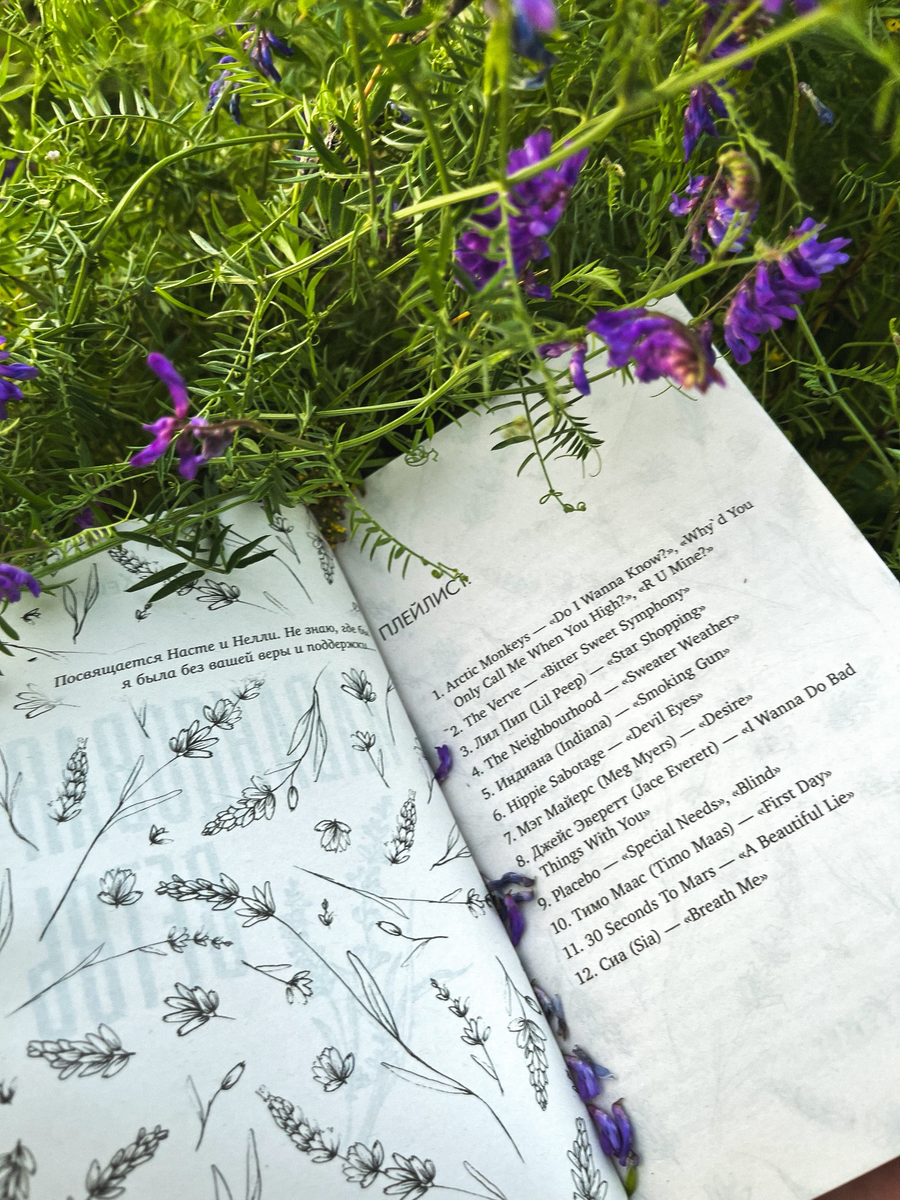 Посвящается Насте и Нелли. Не знаю, где бы
я была без вашей веры и поддержки.
ПЛЕЙЛИСТ
1. Arctic Monkeys — «Do I Wanna Know?», «Why'd You
Only Call Me When You High?», «R U Mine?»
2. The Verve — «Bitter Sweet Symphony»
3. Лил Пип (Lil Peep) — «Star Shopping»
4. The Neighbourhood — «Sweater Weather»
5. Индиана (Indiana) — «Smoking Gun»
6. Hippie Sabotage — «Devil Eyes»
7. Мэг Майерс (Meg Myers) — «Desire»
8. Джейс Эверетт (Jace Everett) — «I Wanna Do Bad
Things With You»
9. Placebo — «Special Needs», «Blind»
10. Тимо Маас (Timo Maas) — «First Day»
11. 30 Seconds To Mars — «A Beautiful Lie»
12. Сиа (Sia) — «Breath Me»